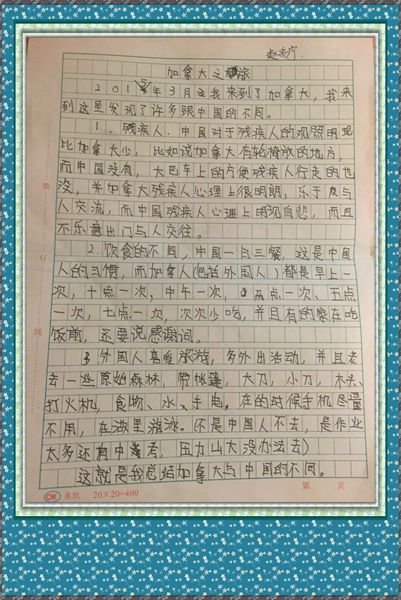 加拿大之
2015年3月我来到了加拿大,我来
到这里发现了许多跟中国的不同。
1.残疾人.中国对于残疾人的照明现
比加拿大少,比如说加拿大有轮椅放的地方,
而中国没有,大巴车上的方便残疾人行走的也
没,并加拿大残疾人心理上很明朗,乐于与
人交流,而中国残疾人心理上明现自悲,而且
不乐意出门与人交往。
2.饮食的不同,中国一日三餐,这是中国
人的习惯,而加拿人(包括外国人)都是早上一
次,十点一次,中午一次,点一次、五点
一次,七点一次,次次少吃,并且有的家在吃
饭前,还要说感谢词。
3.外国人喜旅游,多外出活动,并且去
去一些原始森林,带帐篷,大刀,小刀,木头、
打火机,食物、水、手电。在的时候手机尽量
不用,在湖里游泳。还是中国人不去,是作业
太多还有中考,压力山大没办法去)
这就是我总结加拿大与中国的不同。
装
订
线
OK
20×20=400
第 页